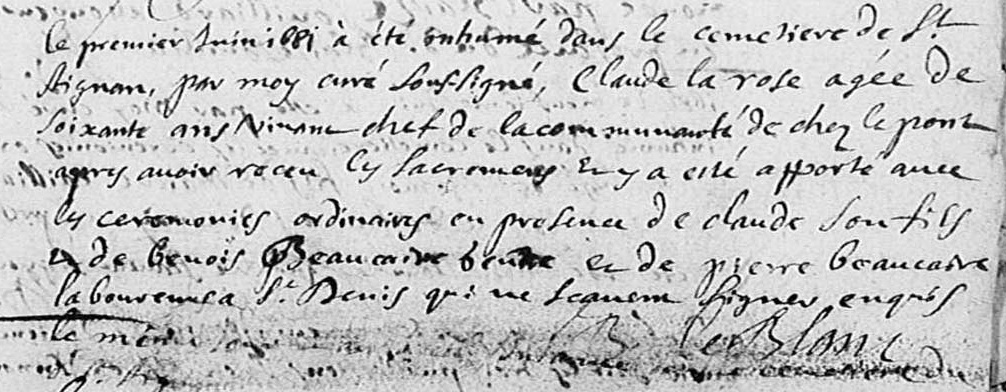 le premier Juin 1681 à été enhumé dans le cemetiere de St
Aignan, par moy curé soussigné, Claude la rose agée de
soixante ans vivant chef de la communauté de chez le pont
apres avoir receu les sacremens et y a esté apporté avec
les ceremonies ordinaires en presence de claude son fils
et de benois Beaucaire et de pierre beaucaire
laboureurs a St Denis qui ne scavent signer enquis
le